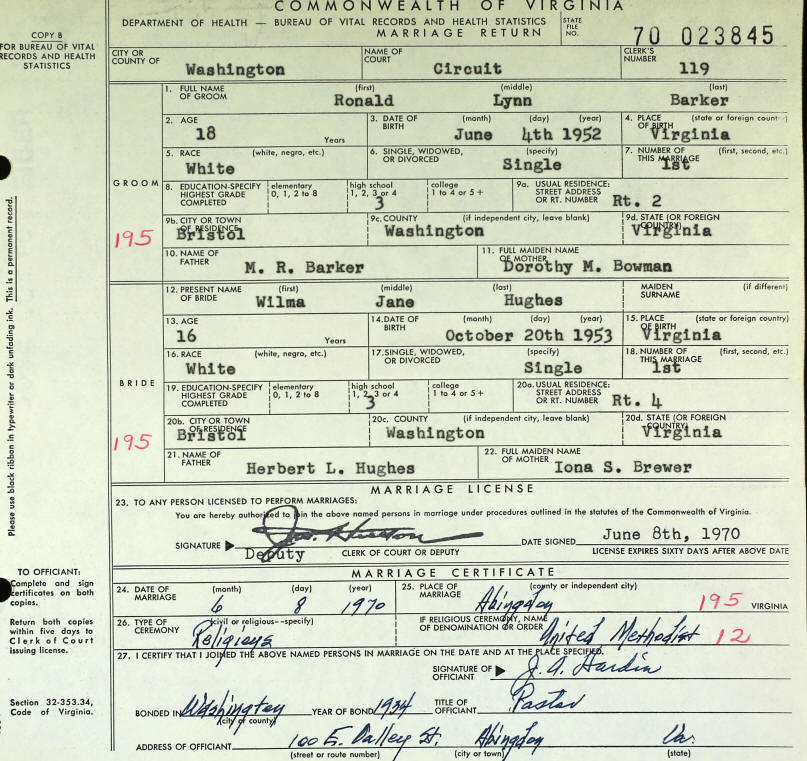 COMMONWEALTH OF VIRGINIA
DEPARTMENT OF HEALTH — BUREAU OF VITAL RECORDS AND HEALTH STATISTICS
MARRIAGE RETURN
STATE FILE NO. 70 023845
COPY B
FOR BUREAU OF VITAL
RECORDS AND HEALTH
STATISTICS
CITY OR COUNTY OF Washington NAME OF COURT Circuit CLERK'S NUMBER 119
GROOM
1. FULL NAME OF GROOM (first) Ronald (middle) Lynn (last) Barker
2. AGE 18 Years 3. DATE OF BIRTH (month) June (day) 4th (year) 1952 4. PLACE OF BIRTH (state or foreign country) Virginia
5. RACE (white, negro, etc.) White 6. SINGLE, WIDOWED, OR DIVORCED (specify) Single 7. NUMBER OF THIS MARRIAGE (first, second, etc.) 1st
8. EDUCATION-SPECIFY HIGHEST GRADE COMPLETED elementary 0, 1, 2 to 8 high school 1, 2, 3 or 4 3 college 1 to 4 or 5 + 9a. USUAL RESIDENCE: STREET ADDRESS OR RT. NUMBER Rt. 2
195
9b. CITY OR TOWN OF RESIDENCE Bristol 9c. COUNTY (if independent city, leave blank) Washington 9d. STATE (OR FOREIGN COUNTRY) Virginia
10. NAME OF FATHER M. R. Barker 11. FULL MAIDEN NAME OF MOTHER Dorothy M. Bowman
BRIDE
12. PRESENT NAME OF BRIDE (first) Wilma (middle) Jane (last) Hughes MAIDEN SURNAME (if different)
13. AGE 16 Years 14. DATE OF BIRTH (month) October (day) 20th (year) 1953 15. PLACE OF BIRTH (state or foreign country) Virginia
16. RACE (white, negro, etc.) White 17. SINGLE, WIDOWED, OR DIVORCED (specify) Single 18. NUMBER OF THIS MARRIAGE (first, second, etc.) 1st
19. EDUCATION-SPECIFY HIGHEST GRADE COMPLETED elementary 0, 1, 2 to 8 high school 1, 2, 3 or 4 3 college 1 to 4 or 5 + 20a. USUAL RESIDENCE: STREET ADDRESS OR RT. NUMBER Rt. 4
195
20b. CITY OR TOWN OF RESIDENCE Bristol 20c. COUNTY (if independent city, leave blank) Washington 20d. STATE (OR FOREIGN COUNTRY) Virginia
21. NAME OF FATHER Herbert L. Hughes 22. FULL MAIDEN NAME OF MOTHER Iona S. Brewer
MARRIAGE LICENSE
23. TO ANY PERSON LICENSED TO PERFORM MARRIAGES:
You are hereby authorized to join the above named persons in marriage under procedures outlined in the statutes of the Commonwealth of Virginia.
SIGNATURE DATE SIGNED June 8th, 1970
Deputy CLERK OF COURT OR DEPUTY LICENSE EXPIRES SIXTY DAYS AFTER ABOVE DATE
MARRIAGE CERTIFICATE
24. DATE OF MARRIAGE (month) 6 (day) 8 (year) 1970 25. PLACE OF MARRIAGE (county or independent city) Abingdon 195 VIRGINIA
26. TYPE OF CEREMONY (civil or religious--specify) Religious IF RELIGIOUS CEREMONY, NAME OF DENOMINATION OR ORDER United Methodist 12
27. I CERTIFY THAT I JOINED THE ABOVE NAMED PERSONS IN MARRIAGE ON THE DATE AND AT THE PLACE SPECIFIED.
SIGNATURE OF OFFICIANT J. A. Hardin
BONDED IN Washington (city or county) YEAR OF BOND 1954 TITLE OF OFFICIANT Pastor
ADDRESS OF OFFICIANT 100 E. Valley St. Abingdon Va.
(street or route number) (city or town) (state)
Please use black ribbon in typewriter or dark unfading ink. This is a permanent record.
TO OFFICIANT:
Complete and sign
certificates on both
copies.
Return both copies
within five days to
Clerk of Court
issuing license.
Section 32-353.34,
Code of Virginia.